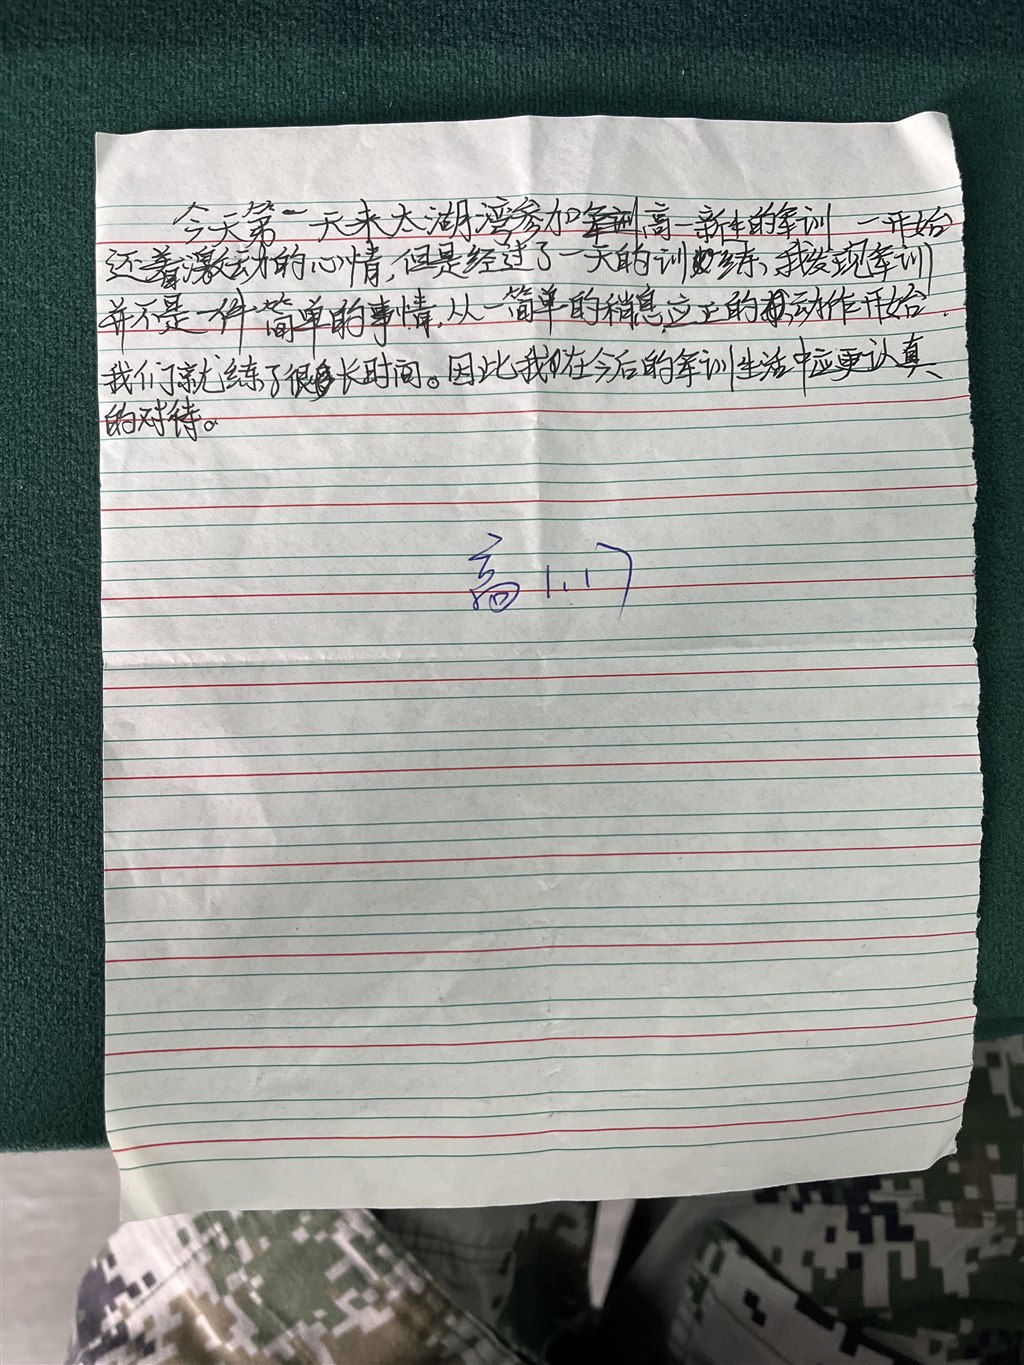 今天第一天来太湖湾参加高一新生的军训 一开始
还着激动的心情,但是经过了一天的训练、我发现军训
并不是一件简单的事情,从一简单的稍息应正的动作开始.
我们就练了很长时间。因此我在今后的军训生活中应更认真
的对待。
高1.17